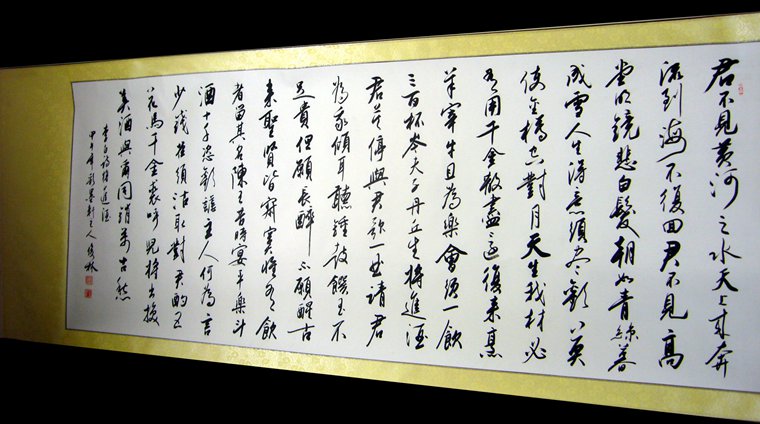 君不見黃河之水天上來奔
流到海不復回君不見高
堂明鏡悲白髮朝如青絲暮
成雪人生得意須盡歡莫
使金樽空對月天生我材必
有用千金散盡還復來烹
羊宰牛且為樂會須一飲
三百杯岑夫子丹丘生將進酒
君莫停與君歌一曲請君
為我傾耳聽鐘鼓饌玉不
足貴但願長醉不願醒古
來聖賢皆寂寞惟有飲
者留其名陳王昔時宴平樂斗
酒十千恣歡謔主人何為言
少錢徑須沽取對君酌五
花馬千金裘呼兒將出換
美酒與爾同銷萬古愁
李白詩將進酒
甲午年彩墨軒主人